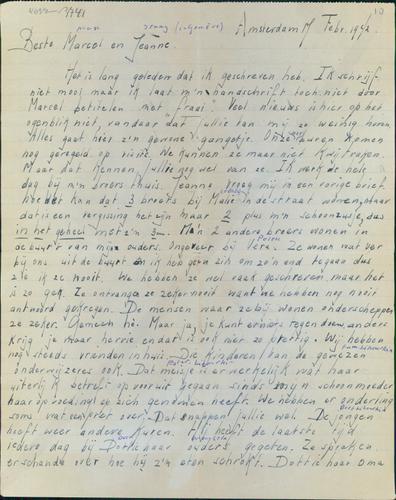 10
Amsterdam 17 Febr. 1942
Beste Marcel en Jeanne.
Het is lang geleden dat ik geschreven heb. Ik schrijf
niet mooi maar ik laat m'n handschrift toch niet door
Marcel betitelen met "fraai". Veel nieuws is hier op het
ogenblik niet, vandaar dat jullie van mij zo weinig horen.
Alles gaat hier z'n gewone gangetje. Onze buren komen
nog geregeld op visite. We kunnen ze maar niet kwijtraken.
Maar dat kennen jullie nog wel van ze. Ik werk de hele
dag bij m'n broers thuis. Jeanne vroeg mij in een vorige brief
hoe dat kan dat 3 broers bij in de straat wonen, maar
dat is een vergissing het zijn maar 2 plus m'n schoonzusje, dus
in het geheel met z'n 3. M'n 2 andere broers wonen in
de buurt van mijn ouders. Ongeveer bij Ze wonen wat ver
bij ons uit de buurt en ik heb geen zin om zo'n end te gaan dus
zie ik ze nooit. We hebben ze net raak geschreven, maar het
is zo gek. Ze ontvangen ze zeker nooit want we hebben nog nooit
antwoord gekregen. De mensen waar ze bij wonen onderscheppen
ze zeker. Gemeen hè. Maar ja, je kunt er niets tegen doen, anders
krijg je maar hervie, en dat is ook niet zo prettig. Wij hebben
nog steeds vrienden in huis. Die kinderen van de gewezen
onderwijzeres ook. Dat meisje is er werkelijk wat haar
uiterlijk betreft op vooruit gegaan sinds m'n schoonmoeder
haar opvoeding op zich genomen heeft. We hebben er onderling
soms wat over. Dat snappen jullie wel. De jongen
heeft weer andere kuren. Hij heeft de laatste tijd
iedere dag bij Dottie haar ouders gegeten. Ze spraken
er schande over hoe hij z'n eten schrokt. Dottie haar oma